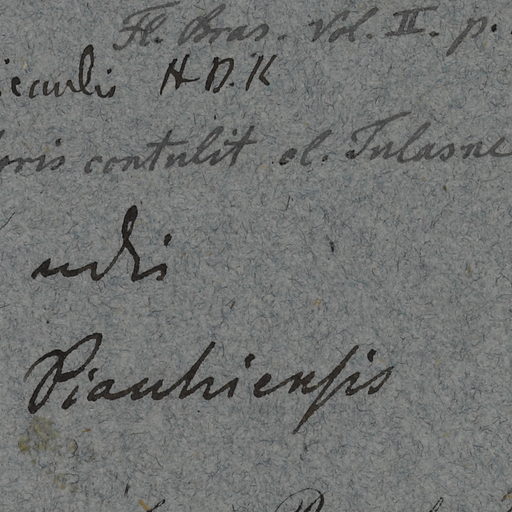 Fl. Bras. Vol. II. p.
H. B. K
contulit cl. Tulasne
udis
Piauhiensis